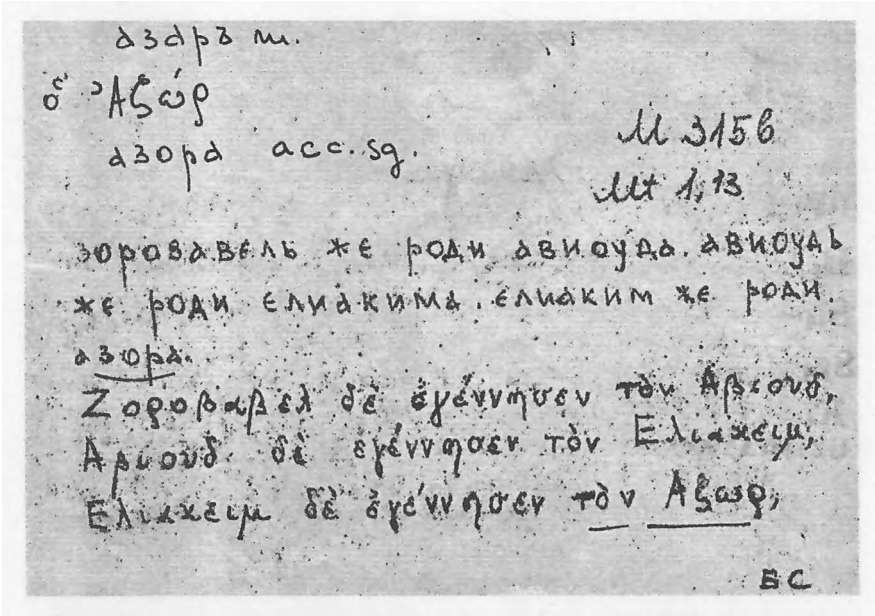 азаръ m.
ὁ Ἀζώρ
азора acc. sg.
M 3156
Mt 1,13
зоровавєль жє роди авиоуда. авиоудь
жє роди єлиакима. єлиаким жє роди.
азора.
Ζοροβαβελ δὲ ἐγέννησεν τὸν Αβιουδ,
Αβιουδ δὲ ἐγέννησεν τὸν Ελιακειμ,
Ελιακειμ δὲ ἐγέννησεν τὸν Αζωρ,
BC